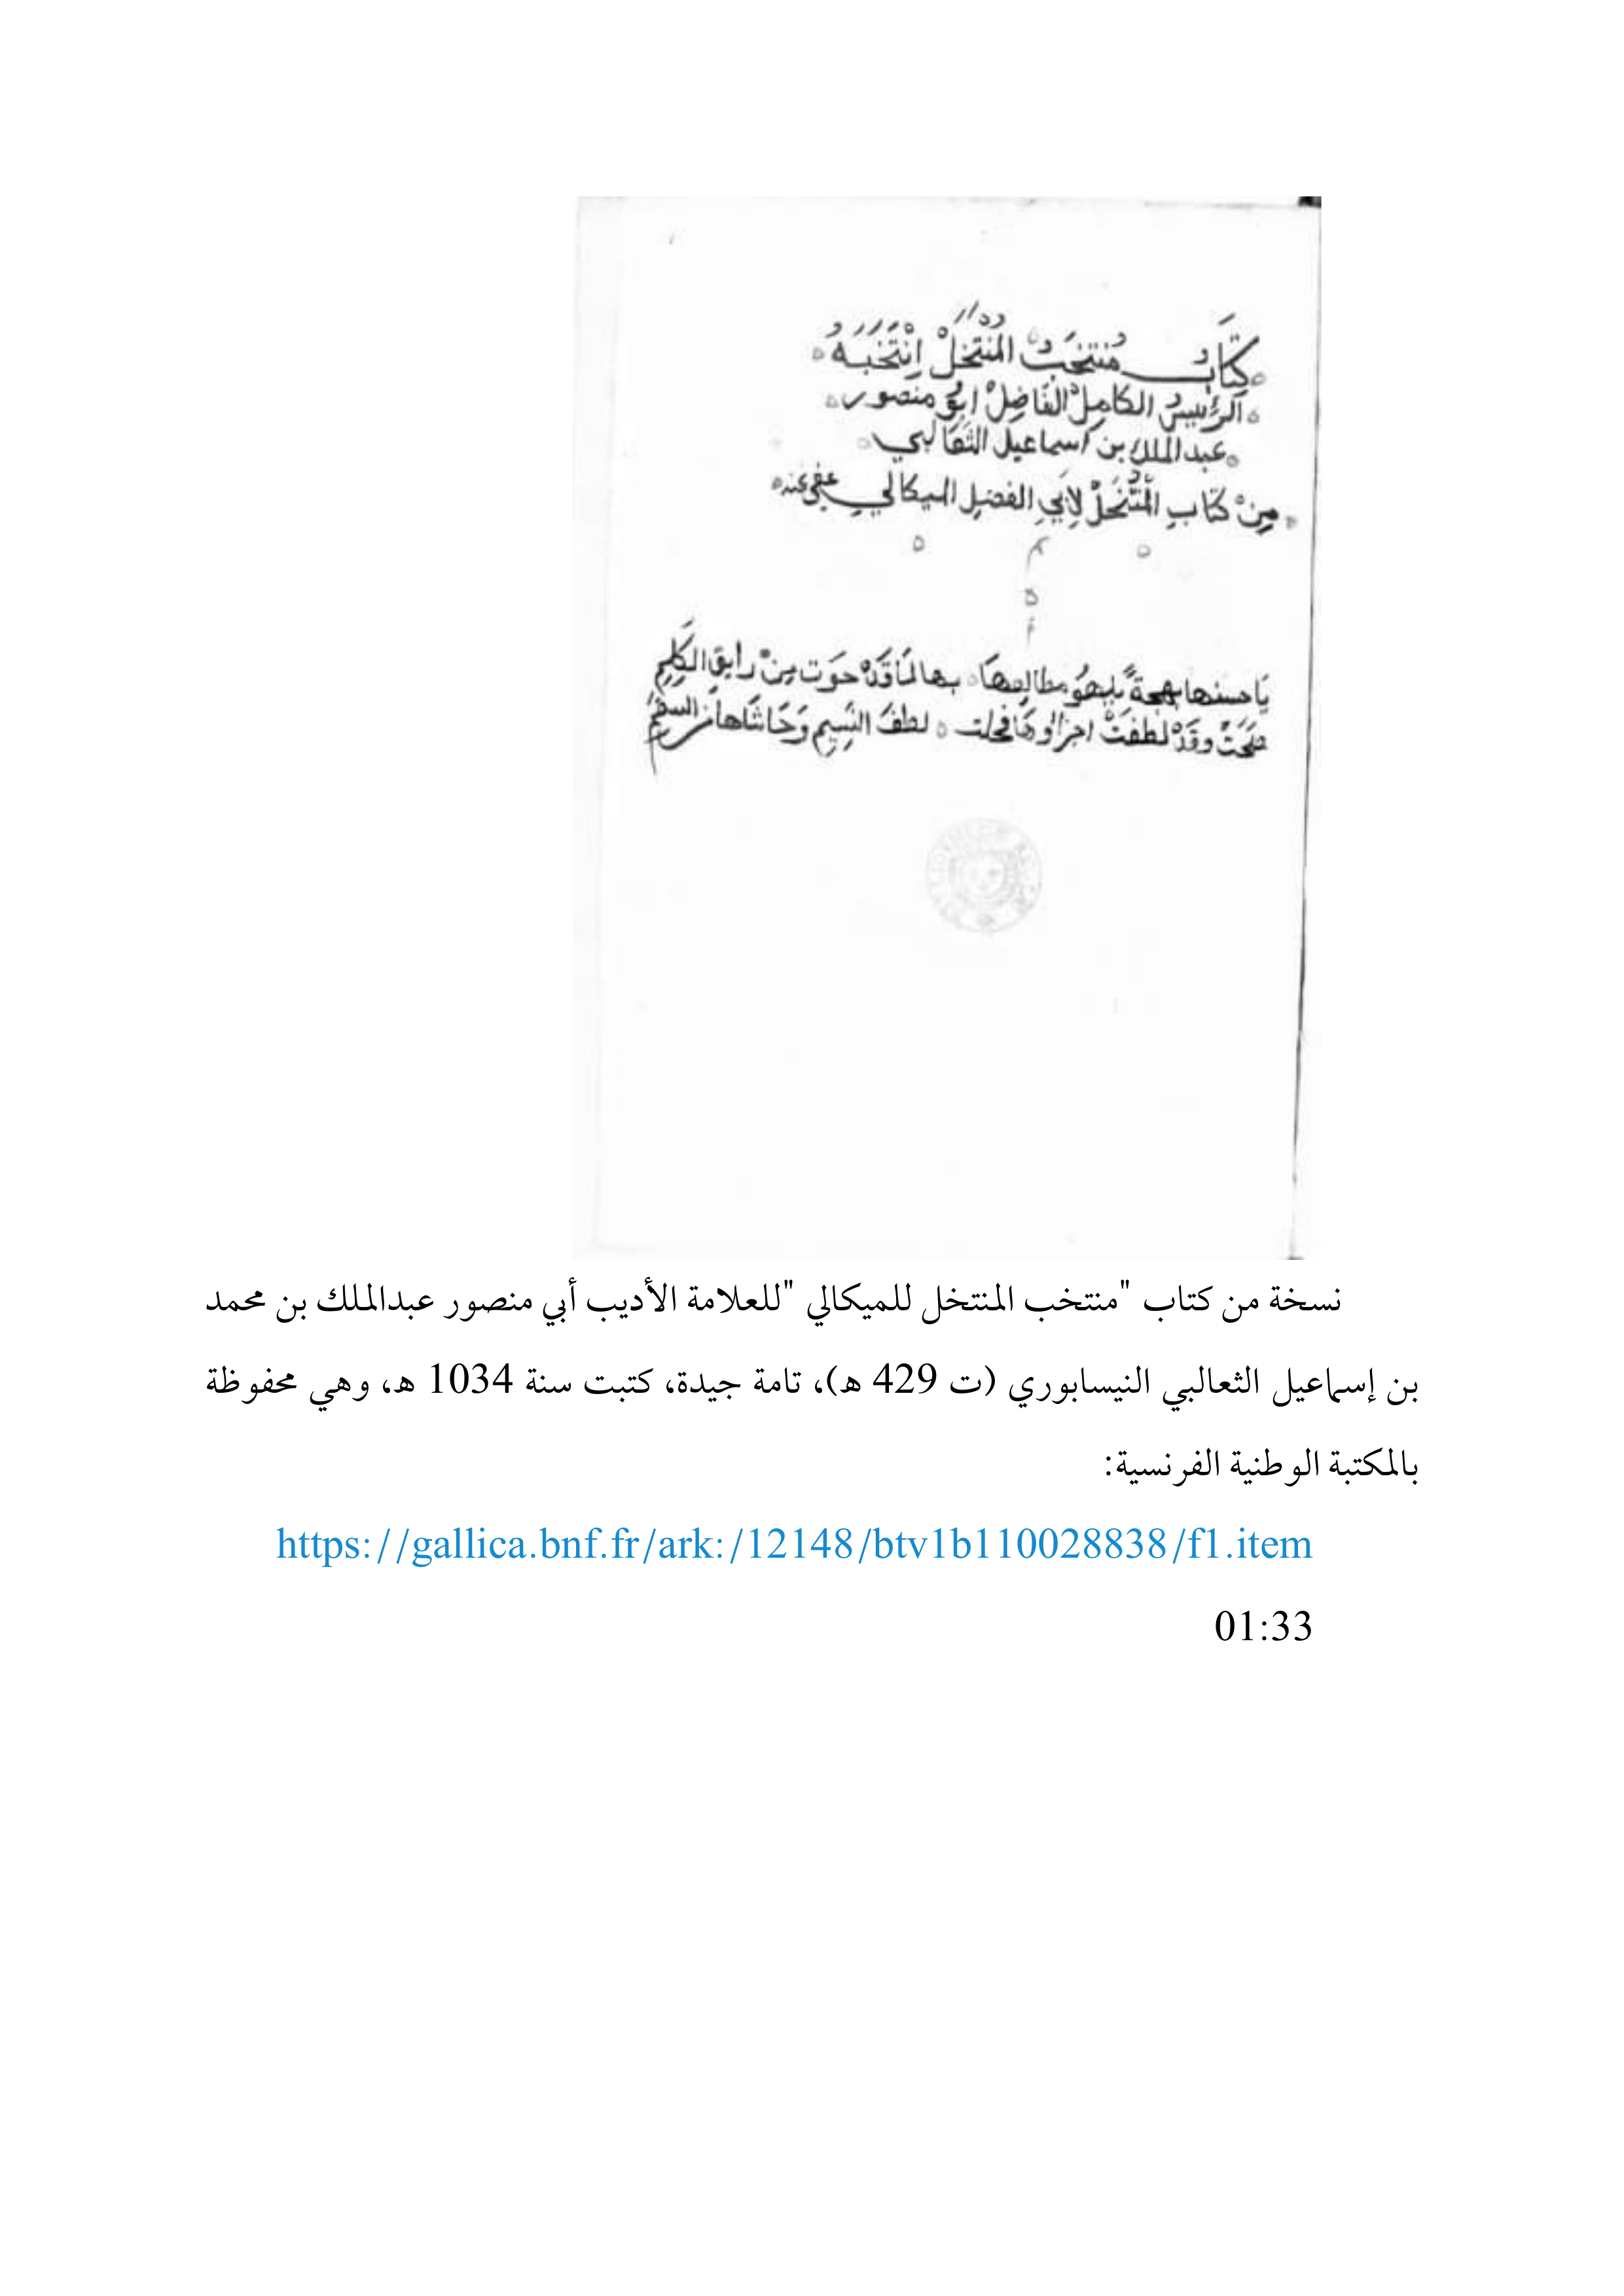 كِتَابُ مُنتَخَبُ المُنْتَخَلْ اِنْتَخَبَهُ
الرَّئيسُ الكامِلُ الفَاضِلْ ابوُ منصور
عبد الملك بن اسماعيل الثعَالبي
مِنْ كتَابِ المُنْتَخَلْ لِأبي الفضل الميكالي عفى عنه
يَا حسنها بهجةً يلهوُ مطالعهَا بها لمَا قَدْ حوَت مِنْ رايق الكَلِمِ
صَحَتْ وقَدْ لطُفَتْ اجزاوهَا فحلت لطفَ النَسِيمِ وَحَاشَاها من السقمِ
نسخة من كتاب "منتخب المنتخل للميكالي "للعلامة الأديب أبي منصور عبدالملك بن محمد
بن إسماعيل الثعالبي النيسابوري (ت 429 هـ)، تامة جيدة، كتبت سنة 1034 هـ، وهي محفوظة
بالمكتبة الوطنية الفرنسية:
https://gallica.bnf.fr/ark:/12148/btv1b110028838/f1.item
01:33